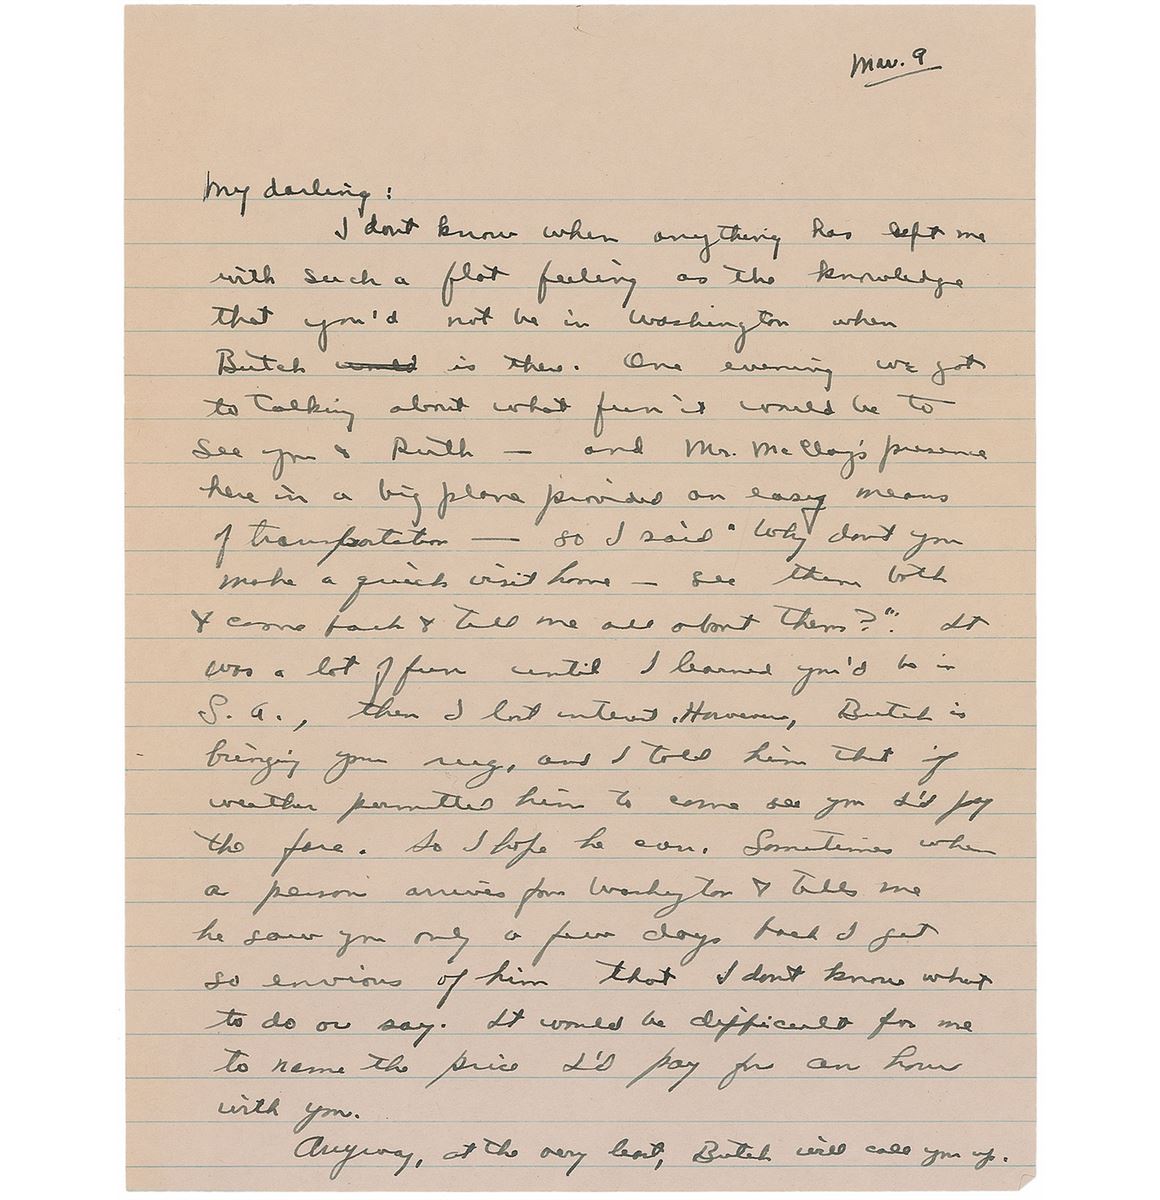 Mar. 9
My darling:
I don't know when anything has left me
with such a flat feeling as the knowledge
that you'd not be in Washington when
Butch would is there. One evening we got
to talking about what fun it would be to
see you & Ruth — and Mr. McCloy's presence
here in a big plane provided an easy means
of transportation — so I said "Why don't you
make a quick visit home — see them both
& come back & tell me all about them?". It
was a lot of fun until I learned you'd be in
S. A., then I lost interest. However, Butch is
bringing your rug, and I told him that if
weather permitted him to come see you I'd pay
the fare. So I hope he can. Sometimes when
a person arrives from Washington & tells me
he saw you only a few days back I get
so envious of him that I don't know what
to do or say. It would be difficult for me
to name the price I'd pay for an hour
with you.
Anyway, at the very least, Butch will call you up.